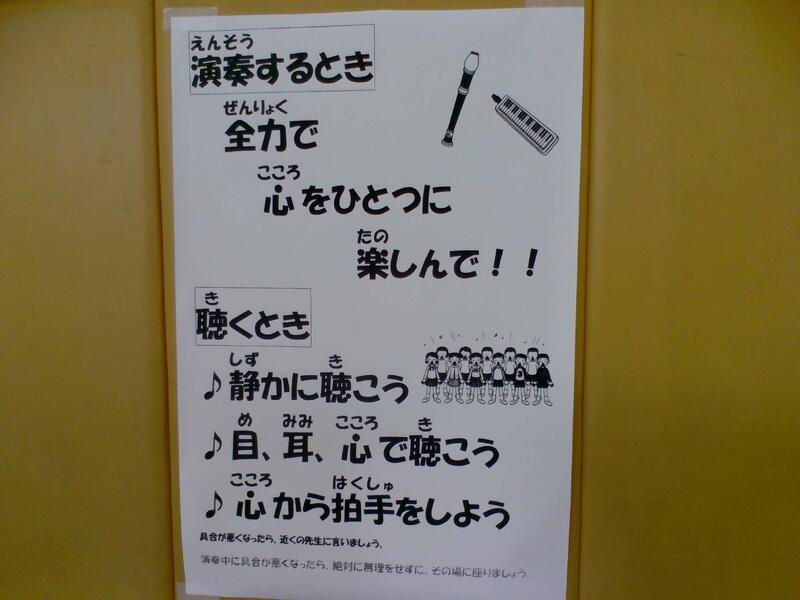 えんそう
演奏するとき
ぜんりょく
全力で
こころ
心をひとつに
たの
楽しんで！！
き
聴くとき
しず き
♪静かに聴こう
め みみ こころ き
♪目、耳、心で聴こう
こころ はくしゅ
♪心から拍手をしよう
具合が悪くなったら、近くの先生に言いましょう。
演奏中に具合が悪くなったら、絶対に無理をせずに、その場に座りましょう。